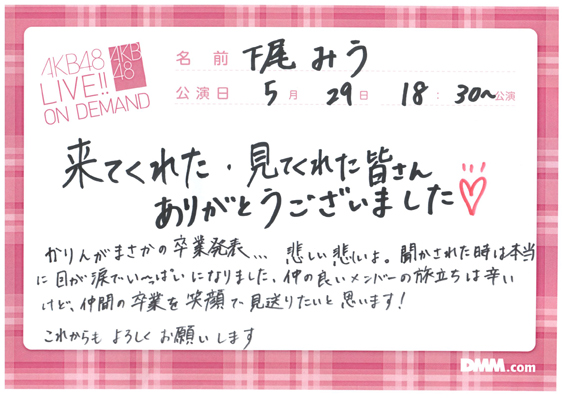 AKB48
LIVE!!
ON DEMAND
AKB
48
名前 下尾みう
公演日 5月 29日 18:30~公演
来てくれた・見てくれた皆さん
ありがとうございました♡
かりんがまさかの卒業発表… 悲しい悲しいよ。聞かされた時は本当
に目が涙でい〜っぱいになりました。仲の良いメンバーの旅立ちは辛い
けど、仲間の卒業を笑顔で見送りたいと思います!
これからも よろしく お願いします
DMM.com